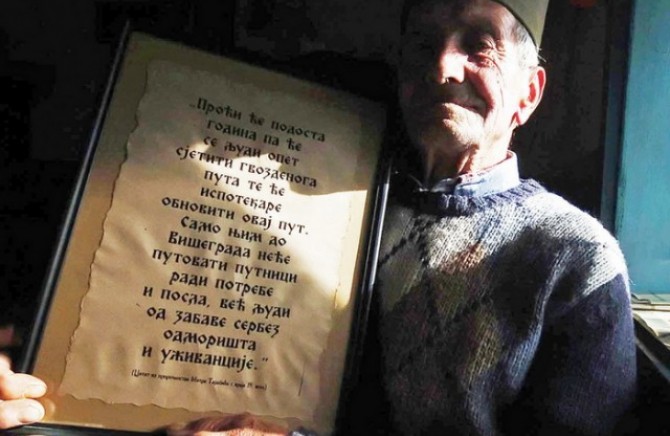 „Проћи ће подоста
година па ће
се људи опет
сјетити гвозденога
пута те ће
испотекаре
обновити овај пут.
Само њим до
Вишеграда неће
путовати путници
ради потребе
и посла, већ људи
од забаве сербез
одморишта
и уживанције."
(Цитат из пророчанства Митра Тарабића - крај 19. века)